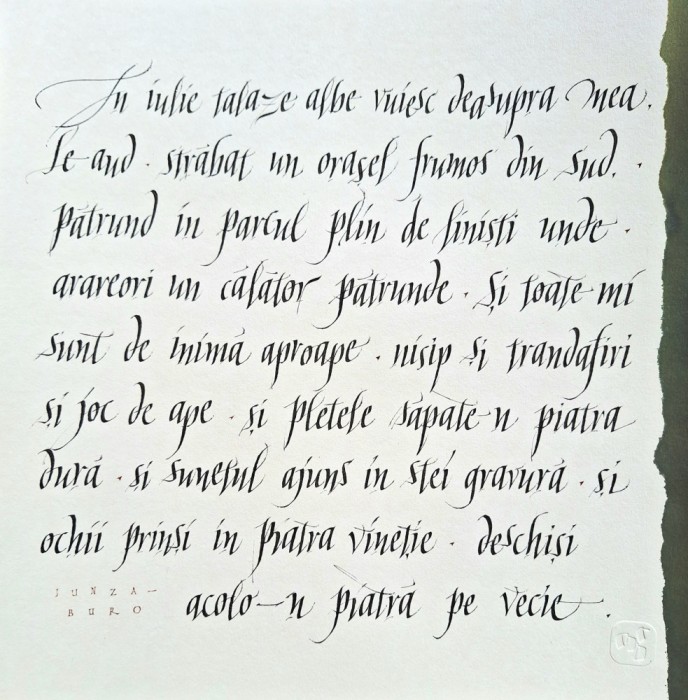 In iulie talaze albe vuiesc deasupra mea.
Le aud · străbat un orașel frumos din sud. ·
pătrund in parcul plin de liniști unde ·
arareori un călător pătrunde · Și toate-mi
sunt de inimă aproape · nisip și trandafiri
și joc de ape · și pletele săpate-n piatra
dură · și sunetul ajuns in stei gravură · și
ochii prinși in piatra vineție · deschiși
acolo-n piatră pe vecie.
JUNZA-
BURO